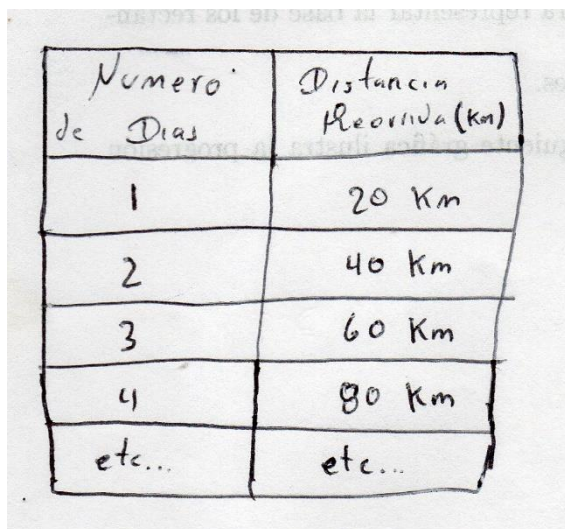 Numero de Dias
Distancia Recorrida (Km)
1 20 Km
2 40 Km
3 60 Km
4 80 Km
etc... etc...